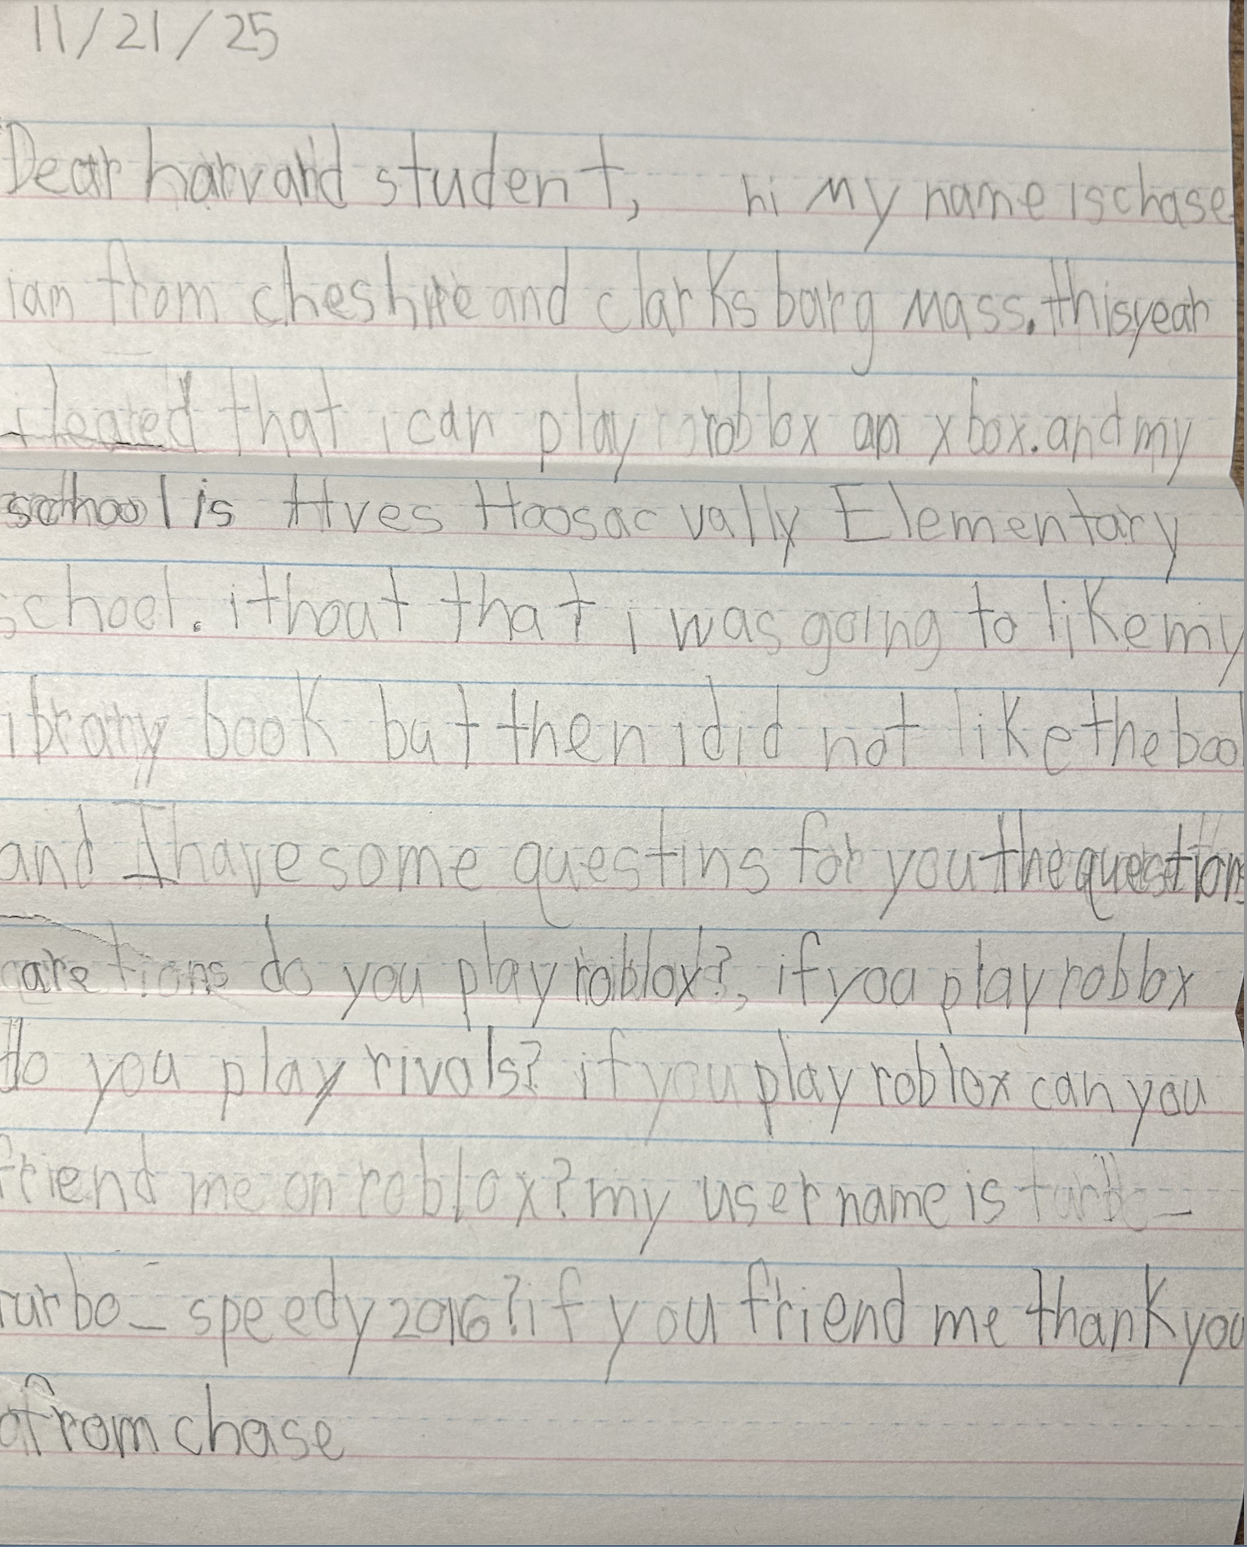 11/21/25
Dear harvard student, hi My name is chase.
iam from cheshire and clarksbarg Mass. this year
i leared that i can play roblox an xbox. and my
school is Hves Hoosac vally Elementary
school. i thoat that i was going to like my
library book but then i did not like the boo
and I have some questins for you the questions
are tions do you play roblox?, if you play roblox
do you play rivals? if you play roblox can you
friend me on roblox? my user name is turbo_
turbo_speedy2016? if you friend me thank you
from chase